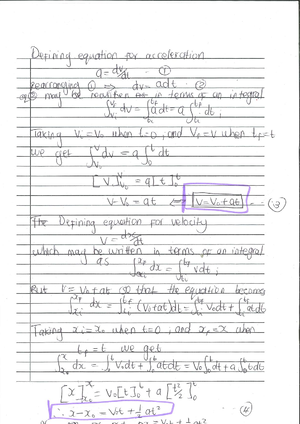 Defining equation for acceleration
a = dv/dt ①
rearranging ① ⇒ dv = adt ②
eq② may be rewritten in terms of an integral
∫_{vi}^{vf} dv = ∫_{ti}^{tf} adt = a ∫_{ti}^{tf} dt ;
Taking Vi = V₀ when t=0, and Vf = V when tf = t
we get ∫_{V₀}^{V} dv = a ∫_0^t dt
[V]_{V₀}^{V} = a[t]_0^t
V-V₀ = at ⇔ V = V₀ + at ... ③
The Defining equation for velocity
V = dx/dt
which may be written in terms of an integral
as ∫_{xi}^{xf} dx = ∫_{ti}^{tf} vdt ;
Put V = V₀+at so that the equation becomes
∫_{xi}^{xf} dx = ∫_{ti}^{tf} (V₀+at)dt = ∫_{ti}^{tf} V₀dt + ∫_{ti}^{tf} atdt
Taking xi = x₀ when t=0, and xf = x when
tf = t we get
∫_{x₀}^{x} dx = ∫_0^t V₀dt + ∫_0^t atdt = V₀∫_0^t dt + a∫_0^t tdt
[x]_{x₀}^{x} = V₀[t]_0^t + a[t²/2]_0^t
∴ x-x₀ = V₀t + ½at² ④